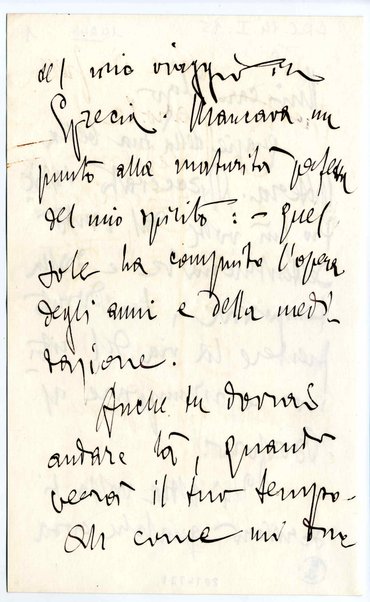 del mio viaggio in
Grecia. Mancava un
punto alla maturità perfetta
del mio spirito: - quel
sole ha compiuto l'opera
degli anni e della medi-
tazione.
Anche tu dovrai
andare là, quando
verrà il tuo tempo.
Ah come mi